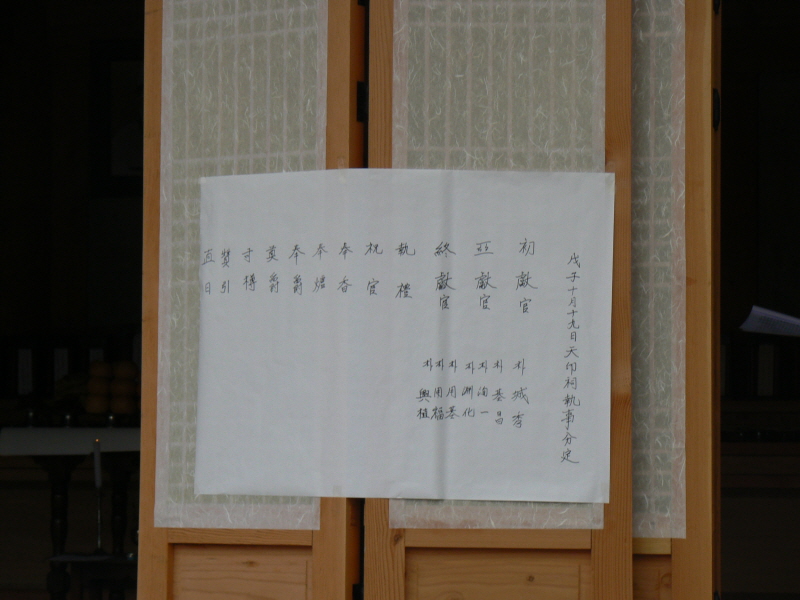 戊子十月十九日天印祠執事分定
初獻官
亞獻官
終獻官
執禮
祝官
奉香
奉爐
奉爵
奠爵
司樽
贊引
直日
朴城秀
朴基昌
朴洵一
朴洲化
朴用基
朴用福
朴興植